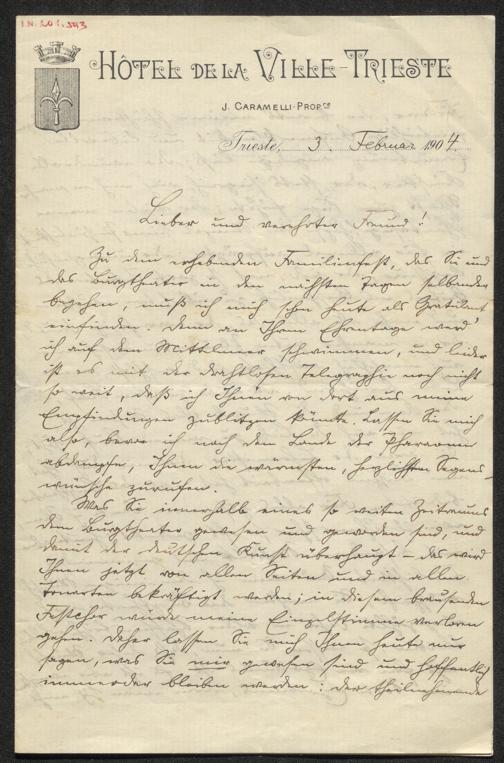 I.N. 201.543
HÔTEL DE LA VILLE-TRIESTE
J. CARAMELLI-PROP.RE
Trieste, 3. Februar 1904.
Lieber und verehrter Freund!
Zu dem erhebenden Familienfest, das Sie und
das Burgtheater in den nächsten Tagen selbander
begehen, muß ich mich schon heute als Gratulant
einfinden. Denn an Ihrem Ehrentage werd'
ich auf dem Mittelmeer schwimmen, und leider
ist es mit der drahtlosen Telegraphie noch nicht
so weit, daß ich Ihnen von dort aus meine
Empfindungen zublitzen könnte. Lassen Sie mich
also, bevor ich nach dem Lande der Pharaonen
abdampfe, Ihnen die wärmsten, herzlichsten Segens-
wünsche zurufen.
Was Sie innerhalb eines so weiten Zeitraums
dem Burgtheater gewesen und geworden sind, und
damit der deutschen Kunst überhaupt – das wird
Ihnen jetzt von allen Seiten und in allen
Tonarten bekräftigt werden; in diesem brausenden
Festchor würde meine Einzelstimme verloren
gehen. Daher lassen Sie mich Ihnen heute nur
sagen, was Sie mir gewesen sind und hoffentlich
immerdar bleiben werden: der theilnehmende